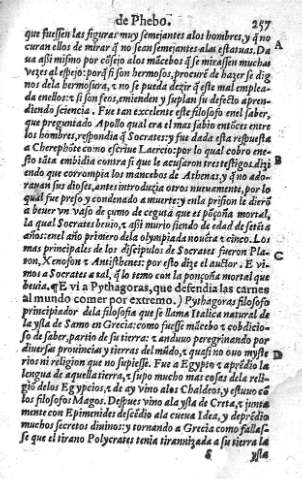 de Phebo. 257
que fuessen las figuras muy semejantes alos hombres, y q̃ no
curan ellos de mirar q̃ no sean semejantes alas estatuas. Da
ua assi mismo por cõsejo alos mãcebos q̃ se mirassen muchas
vezes al espejo: porq̃ si son hermosos, procurẽ de hazer se dig
nos dela hermosura, ⁊ no se pueda dezir q̃ este mal emplea-
da enellos: ⁊ si son feos, emienden y suplan su defecto apren-
diendo sciencia. Fue tan excelente este filosofo enel saber,
que preguntado Apollo qual era el mas sabio entõces entre
los hombres, respondia q̃ Socrates: y fue dada esta respuesta
a Cherephõte como escriue Laercio: por lo qual cobro ene-
sto tãta embidia contra si que le acusaron tres testigos. dizi
endo que corrompia los mancebos de Athenas, y q̃ no ado-
rauan sus dioses, antes introduzia otros nueuamente, por lo
qual fue preso y condenado a muerte: y enla prision le dierõ
a beuer vn vaso de çumo de ceguta que es põçoña mortal,
la qual Socrates beuio, ⁊ assi murio siendo de edad de setẽta
años: enel año primero dela olympiada nouẽta ⁊ cinco. Los
mas principales de los discipulos de Socrates fueron Pla-
ton, Xenofon ⁊ Antisthenes: por esto dize el auctor. E vi-
mos a Socrates a tal, q̃ lo temo con la ponçoña mortal que
beuia. ¶ E vi a Pythagoras, que defendia las carnes
al mundo comer por extremo.) Pythagoras filosofo
principiador dela filosofia que se llama Italica natural de
la ysla de Samo en Grecia: como fuesse mãcebo ⁊ cobdicio-
so de saber, partio de su tierra: ⁊ anduuo peregrinando por
diuersas prouincias y tierras del mũdo, ⁊ quasi no ouo myste
rios ni religion que no supiesse. Fue a Egypto ⁊ aprẽdio la
lengua de aquella tierra, ⁊ supo mucho mas cosas dela reli-
giõ delos Egypcios, ⁊ de ay vino alos Chaldeos, y estuuo cõ
los filosofos Magos. Despues vino ala ysla de Creta, ⁊ junta
mente con Epimenides descẽdio ala cueua Idea, y deprẽdio
muchos secretos diuinos: y tornando a Grecia como fallas-
se que el tirano Polycrates tenia tirannizada a su tierra la
ysla
A
B
C